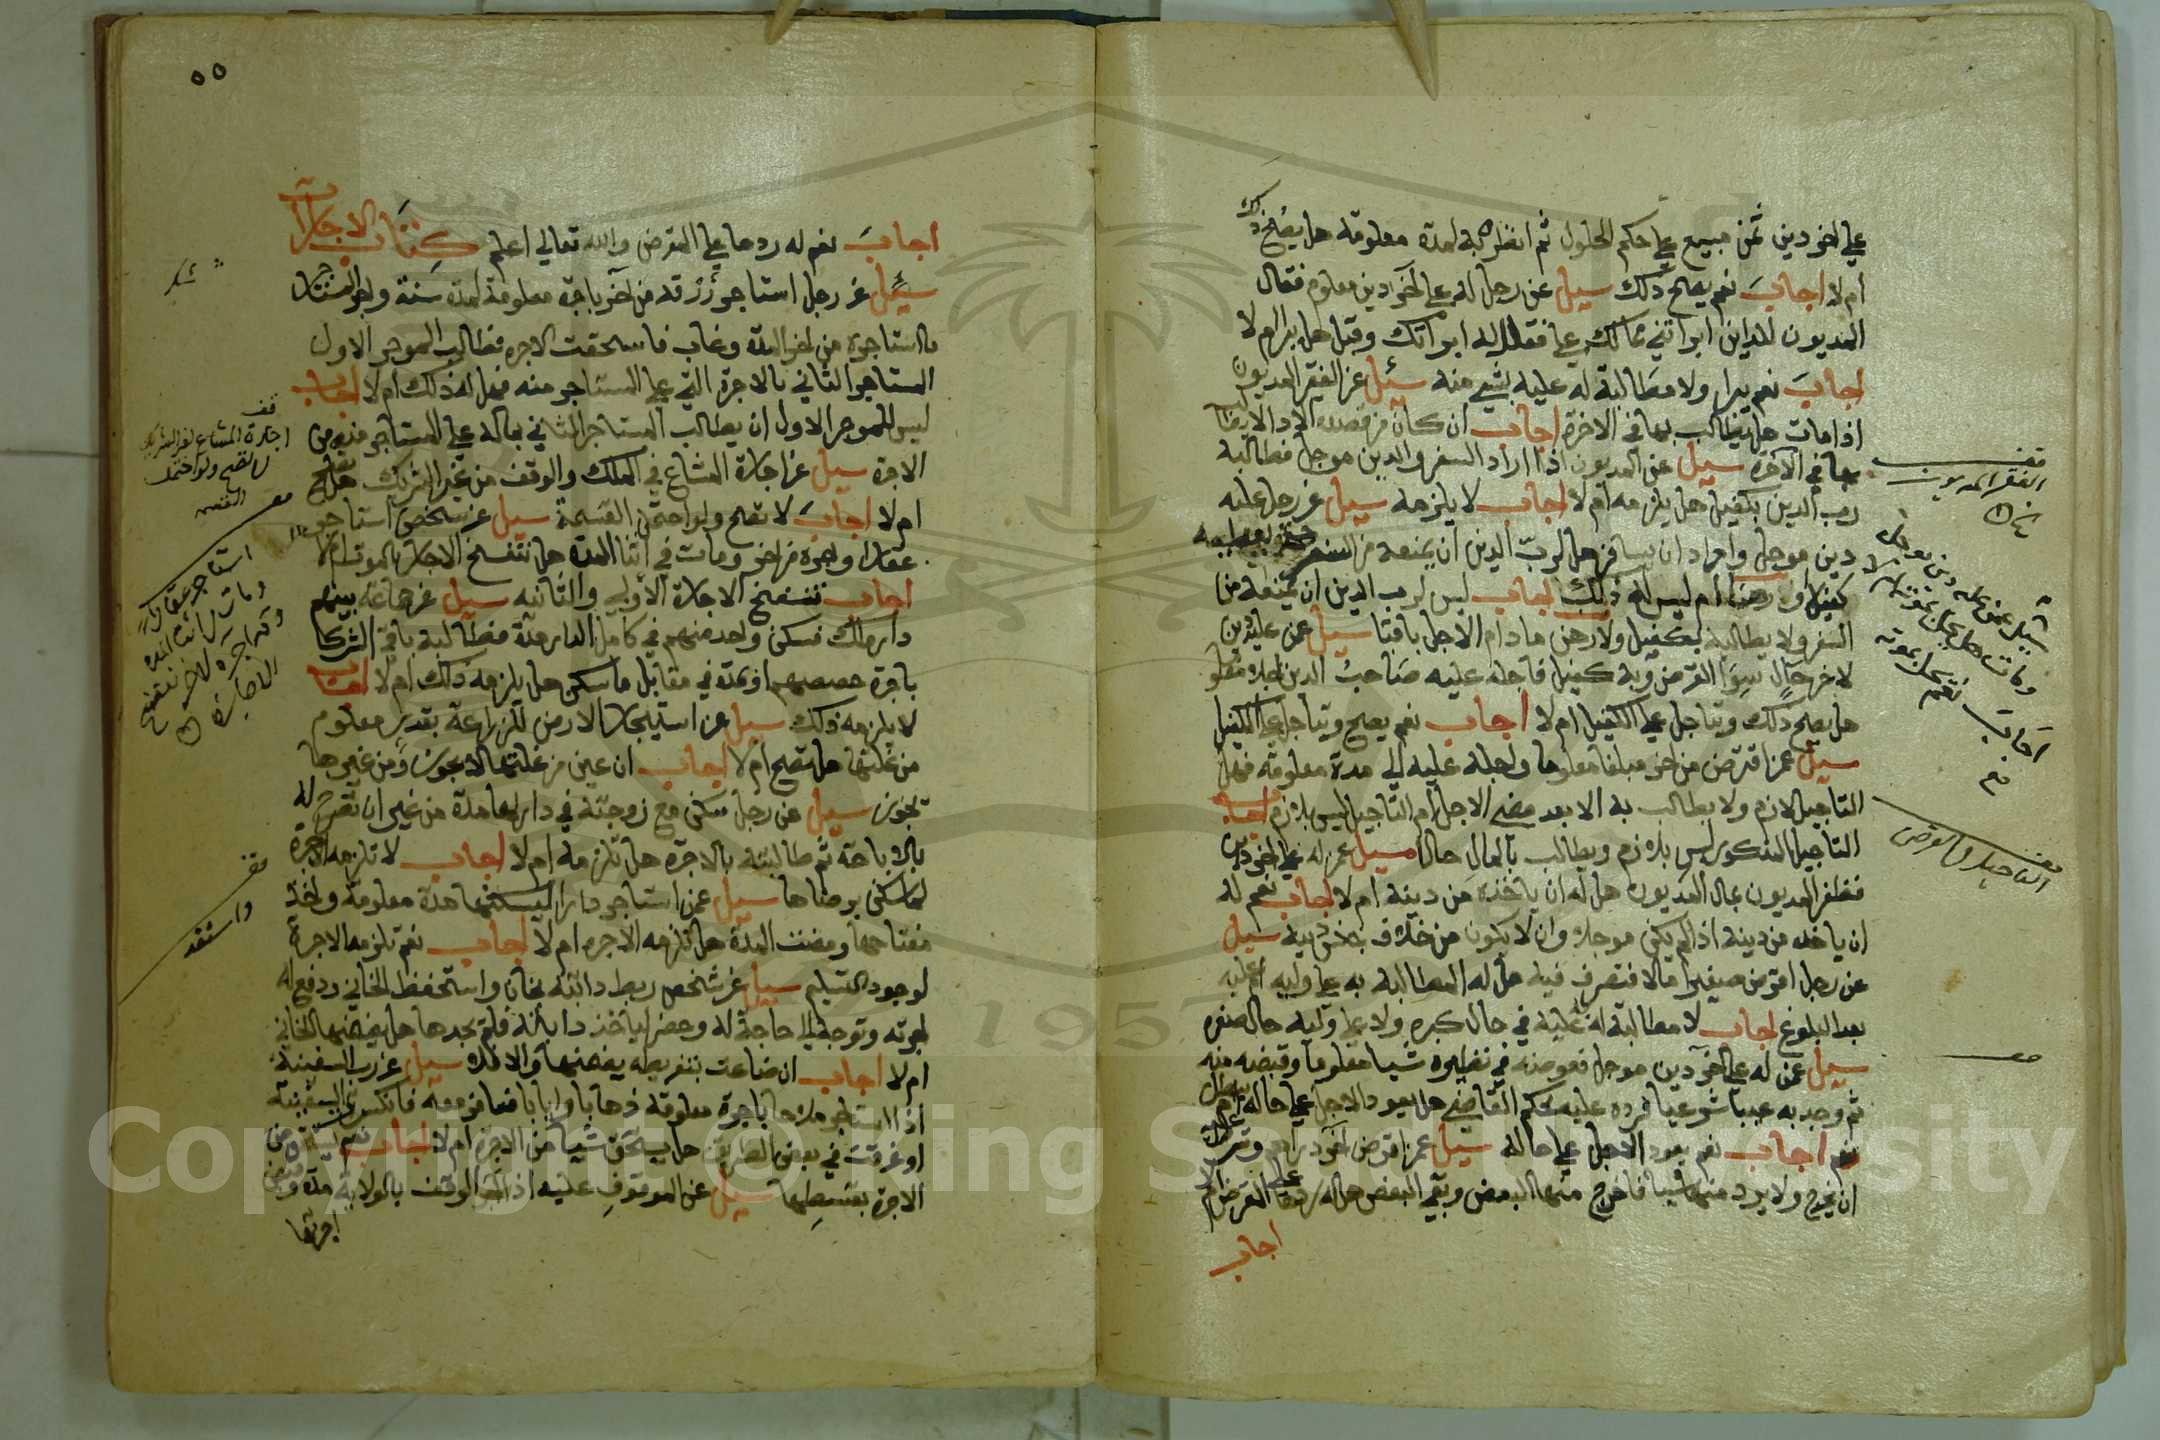 علي اخر دين ثمن مبيع علي حكم الحلول ثم انظره به لمدة معلومة هل يصح ذلك
ام لا اجاب نعم يصح ذلك سيل عن رجل له علي اخر دين معلوم فقال
المديون للداين ابراتني مما لك علي فقال له ابراتك وقبل هل يبرا ام لا
اجاب نعم يبرا ولا مطالبة له عليه بشي منه سئيل عن الفقير المديون
اذا مات هل يطالب بها في الاخرة اجاب ان كان من قصده الادا لا يطالب
بها في الاخرة سيل عن المديون اذا اراد السفر والدين موجل فطالبه
رب الدين بكفيل هل يلزمه ام لا اجاب لا يلزمه سيل عن رجل عليه
دين موجل واراد ان يسافر هل لرب الدين ان يمنعه من السفر حتي يعطيه
كفيلا او رهنا ام ليس له ذلك اجاب ليس لرب الدين ان يمنعه من
السفر ولا يطالبه بكفيل ولا رهن ما دام الاجل باقيا سيل عمن عليه دين
لاخر حال سوا القرض وبه كفيل فاجله عليه صاحب الدين اجلا معلوما
هل يصح ذلك ويتاجل علي الكفيل ام لا اجاب نعم يصح ويتاجل علي الكفيل
سيل عمن اقترض من اخر مبلغا معلوما واجله عليه الي مدة معلومة فهل
التاجيل لازم ولا يطالب به الا بعد مضي الاجل ام التاجيل ليس بلازم اجاب
التاجيل المذكور ليس بلازم ويطالب بالمال حالا سيل عمن له علي اخر دين
فظفر المديون بمال المديون هل له ان ياخذه من دينه ام لا اجاب نعم له
ان ياخذه من دينه اذا لم يكن موجلا وان لا يكون من خلاف جنس دينه سيل
عن رجل اقرض صغيرا مالا فتصرف فيه هل له المطالبة به علي وليه او عليه
بعد البلوغ اجاب لا مطالبة له عليه في حال كبره ولا علي وليه حال صغره
سيل عمن له علي اخر دين موجل فعوضه في نظيره شيا معلوما وقبضه منه
ثم وجد به عيبا شرعيا فرده عليه بحكم القاضي هل يعود الاجل علي حاله ام
نعم اجاب نعم يعود الاجل علي حاله سيل عمن اقرض اخر دراهم وشرط
ان يخرج ولا يرد منها شيا فاخرج منها البعض وبقي البعض هل له ردها علي المقرض ام لا
اجاب
قف
الفقير المديون
سيل عمن عليه دين موجل
ومات هل يحل بموته ام لا
اجاب نعم يحل بموته
قف
التاجيل في القرض
٥٥
اجاب نعم له ردها علي المقرض والله تعالي اعلم كتاب الاجارات
سئيل عن رجل استاجر ازرقة من اخر باجرة معلومة لمدة سنة واجر المستاجر
ما استاجره من اخر المدة وغاب فاستحقت الاجره فطالب الموجر الاول
المستاجر الثاني بالاجرة التي علي المستاجر منه فهل له ذلك ام لا اجاب
ليس للموجر الاول ان يطالب المستاجر الثاني بماله علي المستاجر منه من
الاجرة سيل عن اجارة المشاع في الملك والوقف من غير الشريك هل تصح
ام لا اجاب لا تصح ولو احتمل القسمة سيل عن شخص استاجر
عقارا واجره من اخر ومات في اثنا المدة هل تنفسخ الاجارة بالموت ام لا
اجاب تنفسخ الاجارة الاولي والثانيه سيل عن جماعة بينهم
دار ملك فسكن واحد منهم في كامل الدار مدة فطالبه باقي الشركا
باجرة حصصهم او بمدة في مقابل ما سكن هل يلزمه ذلك ام لا اجاب
لا يلزمه ذلك سيل عن استيجار الارض للزراعة بقدر معلوم
من غلتها هل يصح ام لا اجاب ان عين من غلتها لا يجوز ومن غيرها
تجوز سيل عن رجل سكن مع زوجته في دارها مدة من غير ان تصرح له
بالاباحة ثم طالبته بالاجرة هل تلزمه ام لا اجاب لا تلزمه الاجرة
لما سكن برضاها سيل عمن استاجر دارا ليسكنها مدة معلومة واخذ
مفتاحها ومضت المدة هل تلزمه الاجره ام لا اجاب نعم تلزمه الاجرة
لوجود التسليم سيل عن شخص ربط دابته بخان واستحفظ الخاني ودفع له
اجرته وتوجه الي حاجة له وحضر لياخذ دابته فلم يجدها هل يضمنها الخاني
ام لا اجاب ان ضاعت بتفريطه يضمنها والا فلا سيل عن رب السفينة
اذا استاجرها باجرة معلومة ذهابا وايابا فسافر معه فانكسرت السفينة
او غرقت في بعض الطريق هل يستحق شيا من الاجرة ام لا اجاب نعم يستحق من
الاجرة بقسطها سيل عن الموقوف عليه اذا اجر الوقف بالولاية مدة وقبض
اجرتها
قف
اجارة المشاع لغير الشريك
لا تصح ولو احتمل
القسمة
استاجر عقارا
ومات في اثنا المدة
وقد اجره لاخر تنفسخ
الاجارة